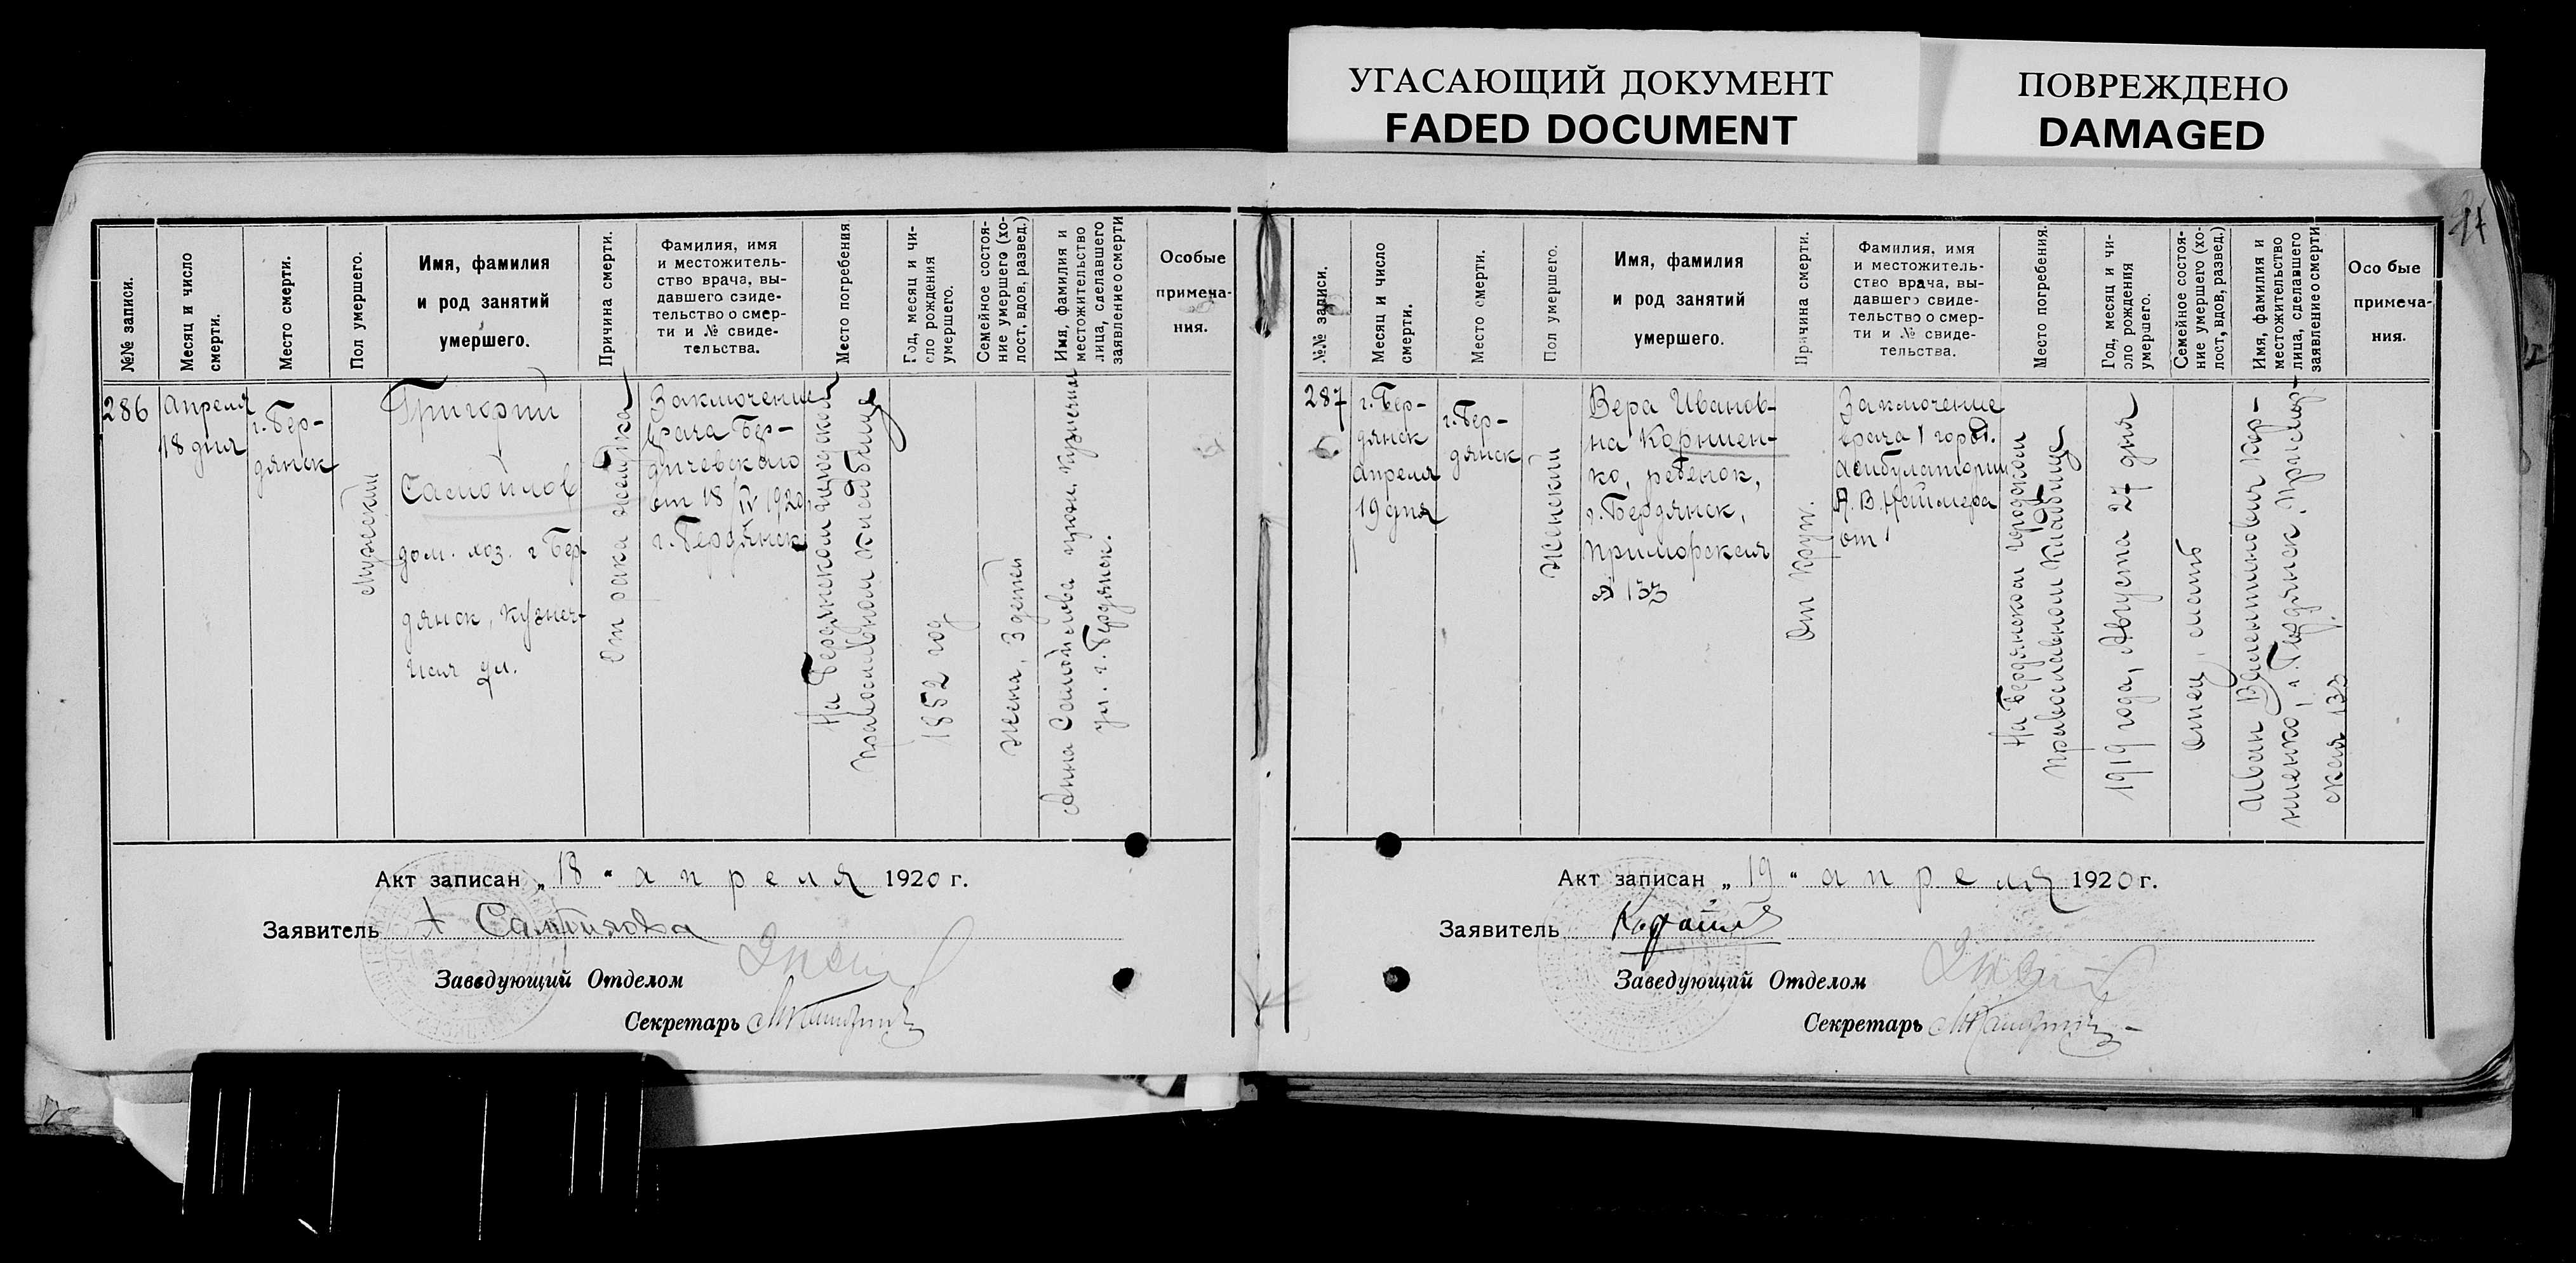 УГАСАЮЩИЙ ДОКУМЕНТ
FADED DOCUMENT
ПОВРЕЖДЕНО
DAMAGED
№№ записи.
Месяц и число
смерти.
Место смерти.
Пол умершего.
Имя, фамилия
и род занятий
умершего.
Причина смерти.
Фамилия, имя
и местожитель-
ство врача, вы-
давшего свиде-
тельство о смер-
ти и № свиде-
тельства.
Место погребения
Год, месяц и чи-
сло рождения
умершего.
Семейное состоя-
ние умершего (хо-
лост, вдов, развед.)
Имя, фамилия и
местожительство
лица, сделавшего
заявление о смерти
Особые
примеча-
ния.
286
апреля
18 дня
г. Бер-
дянск
Мужеский
Григорий
Самойлов
дом. хоз. г Бер-
дянск, Кузнеч-
ная ул.
От рака желудка
Заключение
врача Бер-
дичевского
от 18/IV 1920
г. Бердянск
На Бердянском городском
православном кладбище
1852 год
Жена, 3 детей
Анна Самойлова прож. Кузнечная
ул. г. Бердянск.
Акт записан „ 18 “ апреля 1920 г.
Заявитель А Самойлова
Заведующий Отделом
Секретарь
№№ записи.
Месяц и число
смерти.
Место смерти.
Пол умершего.
Имя, фамилия
и род занятий
умершего.
Причина смерти.
Фамилия, имя
и местожитель-
ство врача, вы-
давшего свиде-
тельство о смер-
ти и № свиде-
тельства.
Место погребения.
Год, месяц и чи-
сло рождения
умершего.
Семейное состоя-
ние умершего (хо-
лост, вдов, развед.)
Имя, фамилия и
местожительство
лица, сделавшего
заявление о смерти
Особые
примеча-
ния.
287
г. Бер-
дянск
апреля
19 дня
г. Бер-
дянск
Женский
Вера Иванов-
на Корниен-
ко, ребенок,
г. Бердянск,
Приморская
№ 133
От круп.
Заключение
врача 1 город.
амбулатории
А. В. Неймера
от
На Бердянском городском
православном кладбище
1919 года, Августа 27 дня
Отец, мать
Иван Валентинович Кор-
ниенко, г. Бердянск, Примор-
ская 133
Акт записан „ 19 “ апреля 1920 г.
Заявитель
Заведующий Отделом
Секретарь